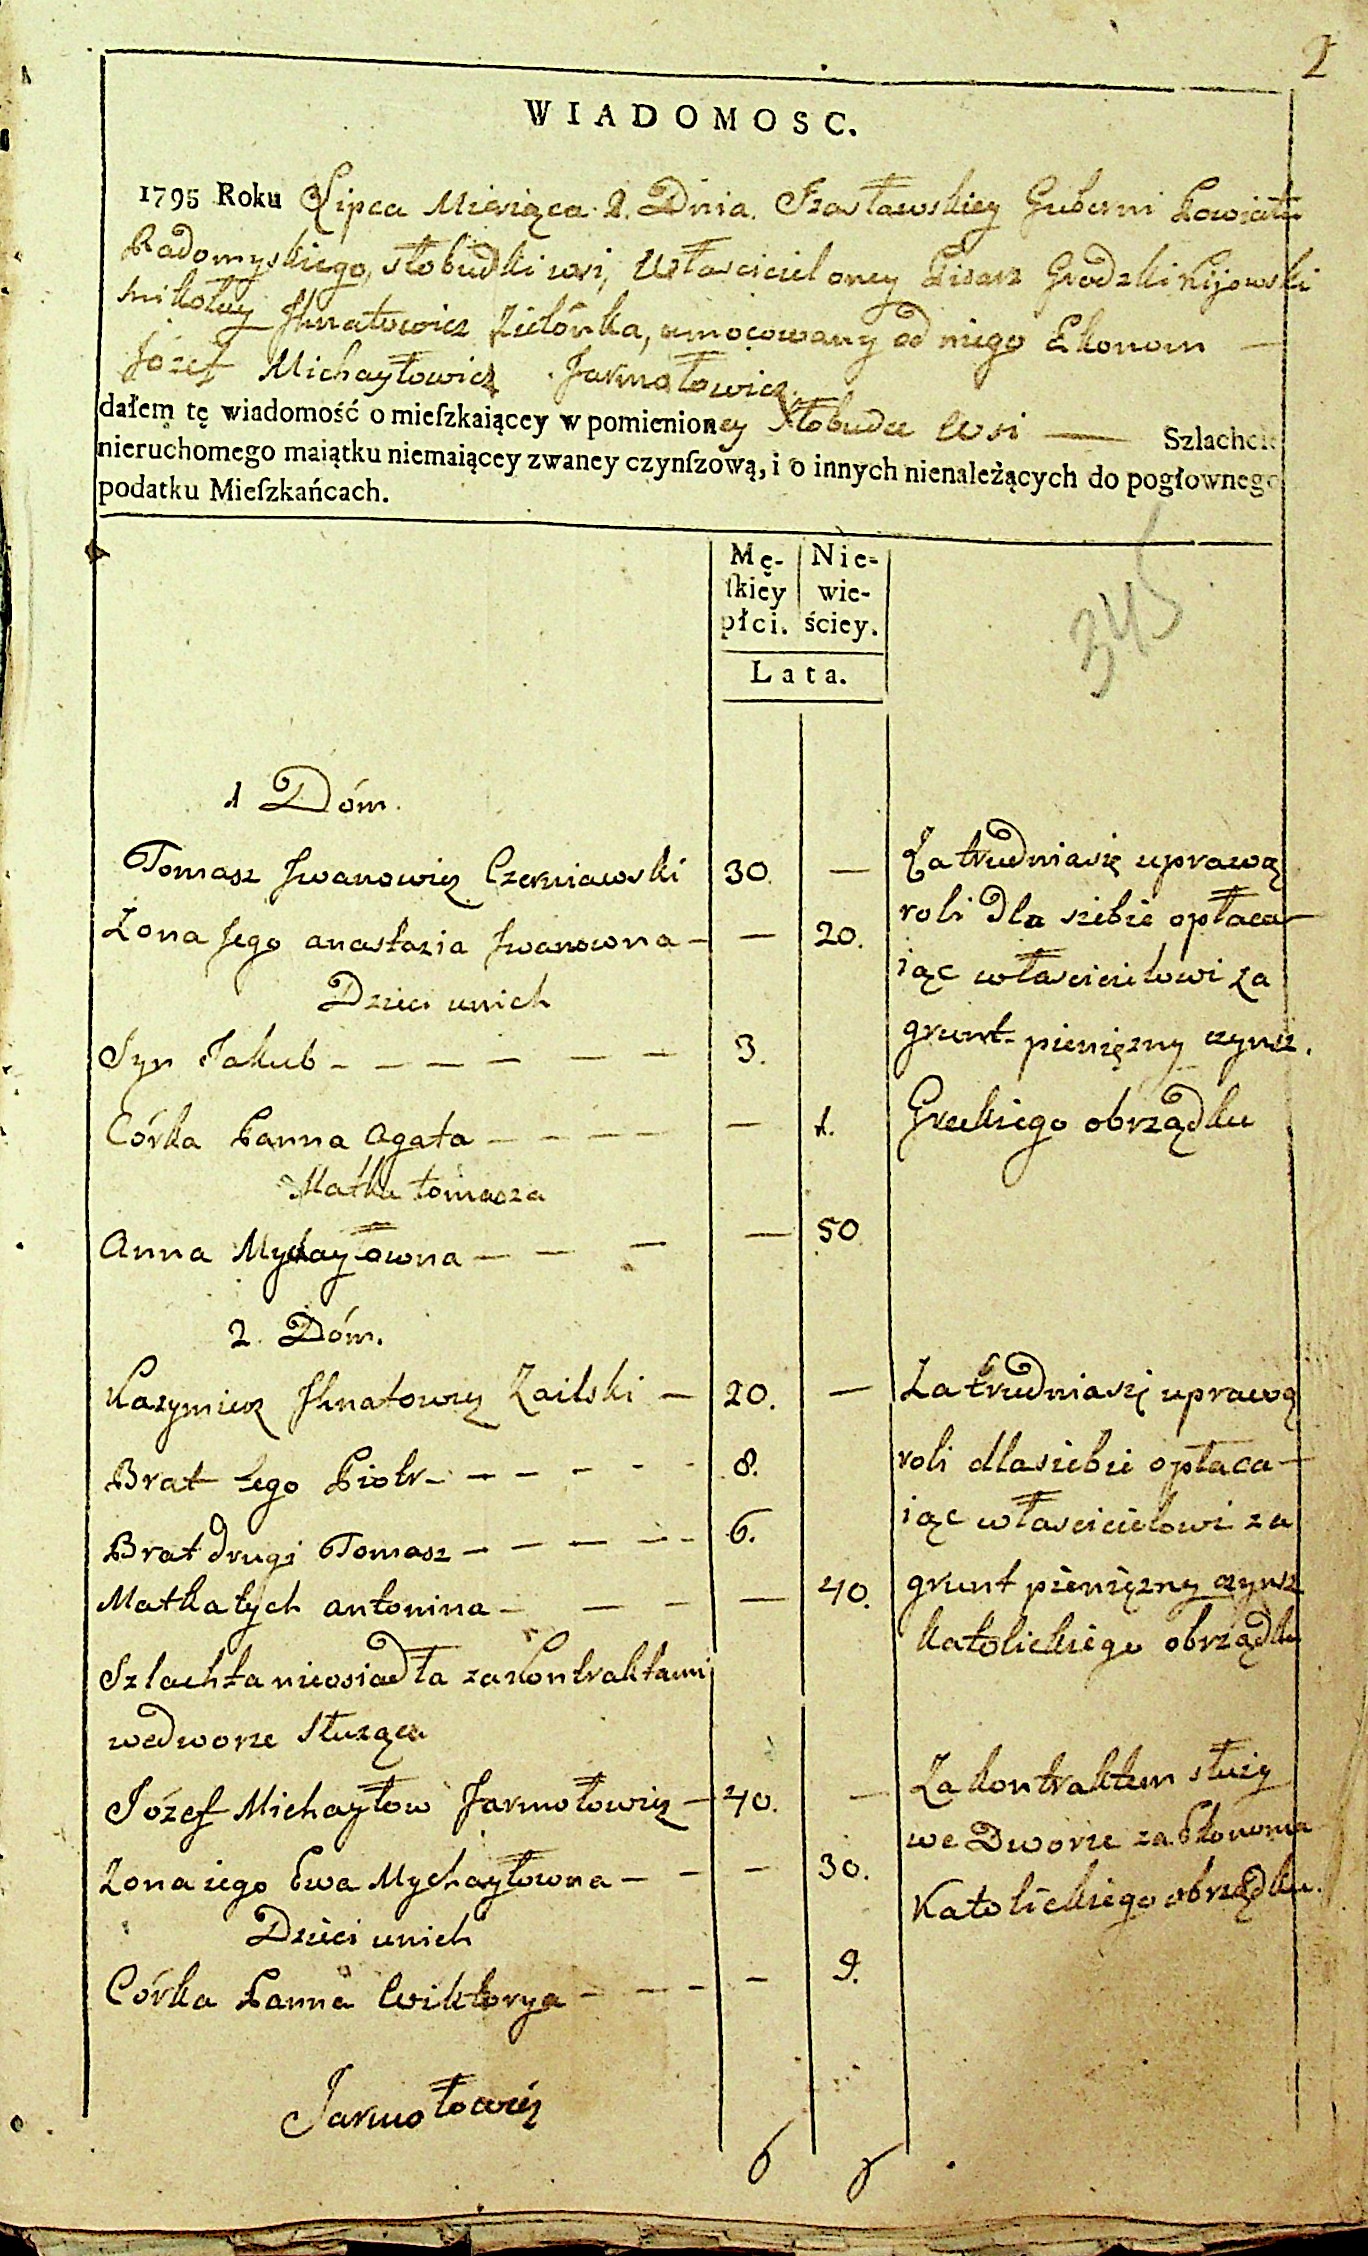 2
WIADOMOSC.
1795 Roku Lipca Miesiąca 2. Dnia. Izasławskiey Guberni Powiatu
Radomyskiego, słobudki wsi, Właściciel oney Pisarz Grodzki Kijowski
Mikołay Ihnatowicz Zielónka, umocowany od niego Ekonom —
Józef Michayłowicz Jarmołowicz
dałem tę wiadomość o mieſzkaiącey w pomienioney Słobudce Wsi — Szlachcie
nieruchomego maiątku niemaiącey zwaney czynſzową, i o innych nienależących do pogłownego
podatku Mieſzkańcach.
Mę- Nie-
ſkiey wie-
płci. ściey.
Lata.
345
1 Dóm.
Tomasz Iwanowicz Czerniawski 30 — Zatrudniasię uprawą
Zona Jego anastazia Iwanowna — — 20. roli dla siebie opłaca-
Dzieci unich iąc włascicielowi za
Syn Jakub — — — — — — 3. grunt pieniężny czynsz.
Córka Panna Agata — — — — — 1. Greckiego obrządku
Matka tomasza
Anna Mychayłowna — — — — 50
2. Dóm.
Kazymierz Ihnatowicz Zailski — 20. — Zatrudniasię uprawą
Brat Jego Piotr — — — — — 8. roli dlasiebie opłaca-
Brat drugi Tomasz — — — — — 6. iąc włascicielowi za
Matka tych antonina — — — — 40. grunt pieniężny czynsz
Katolickiego obrządku
Szlachta nieosiadła zakontraktami
wedworze służąca
Józef Michayłow Jarmołowicz — 40. — Zakontraktem służy
Zona iego Ewa Mychayłowna — — — 30. we Dworze za Ekonoma
Dzieci unich Katolickiego obrządku.
Córka Panna Wiktorya — — — — 9.
Jarmołowicz
6 8